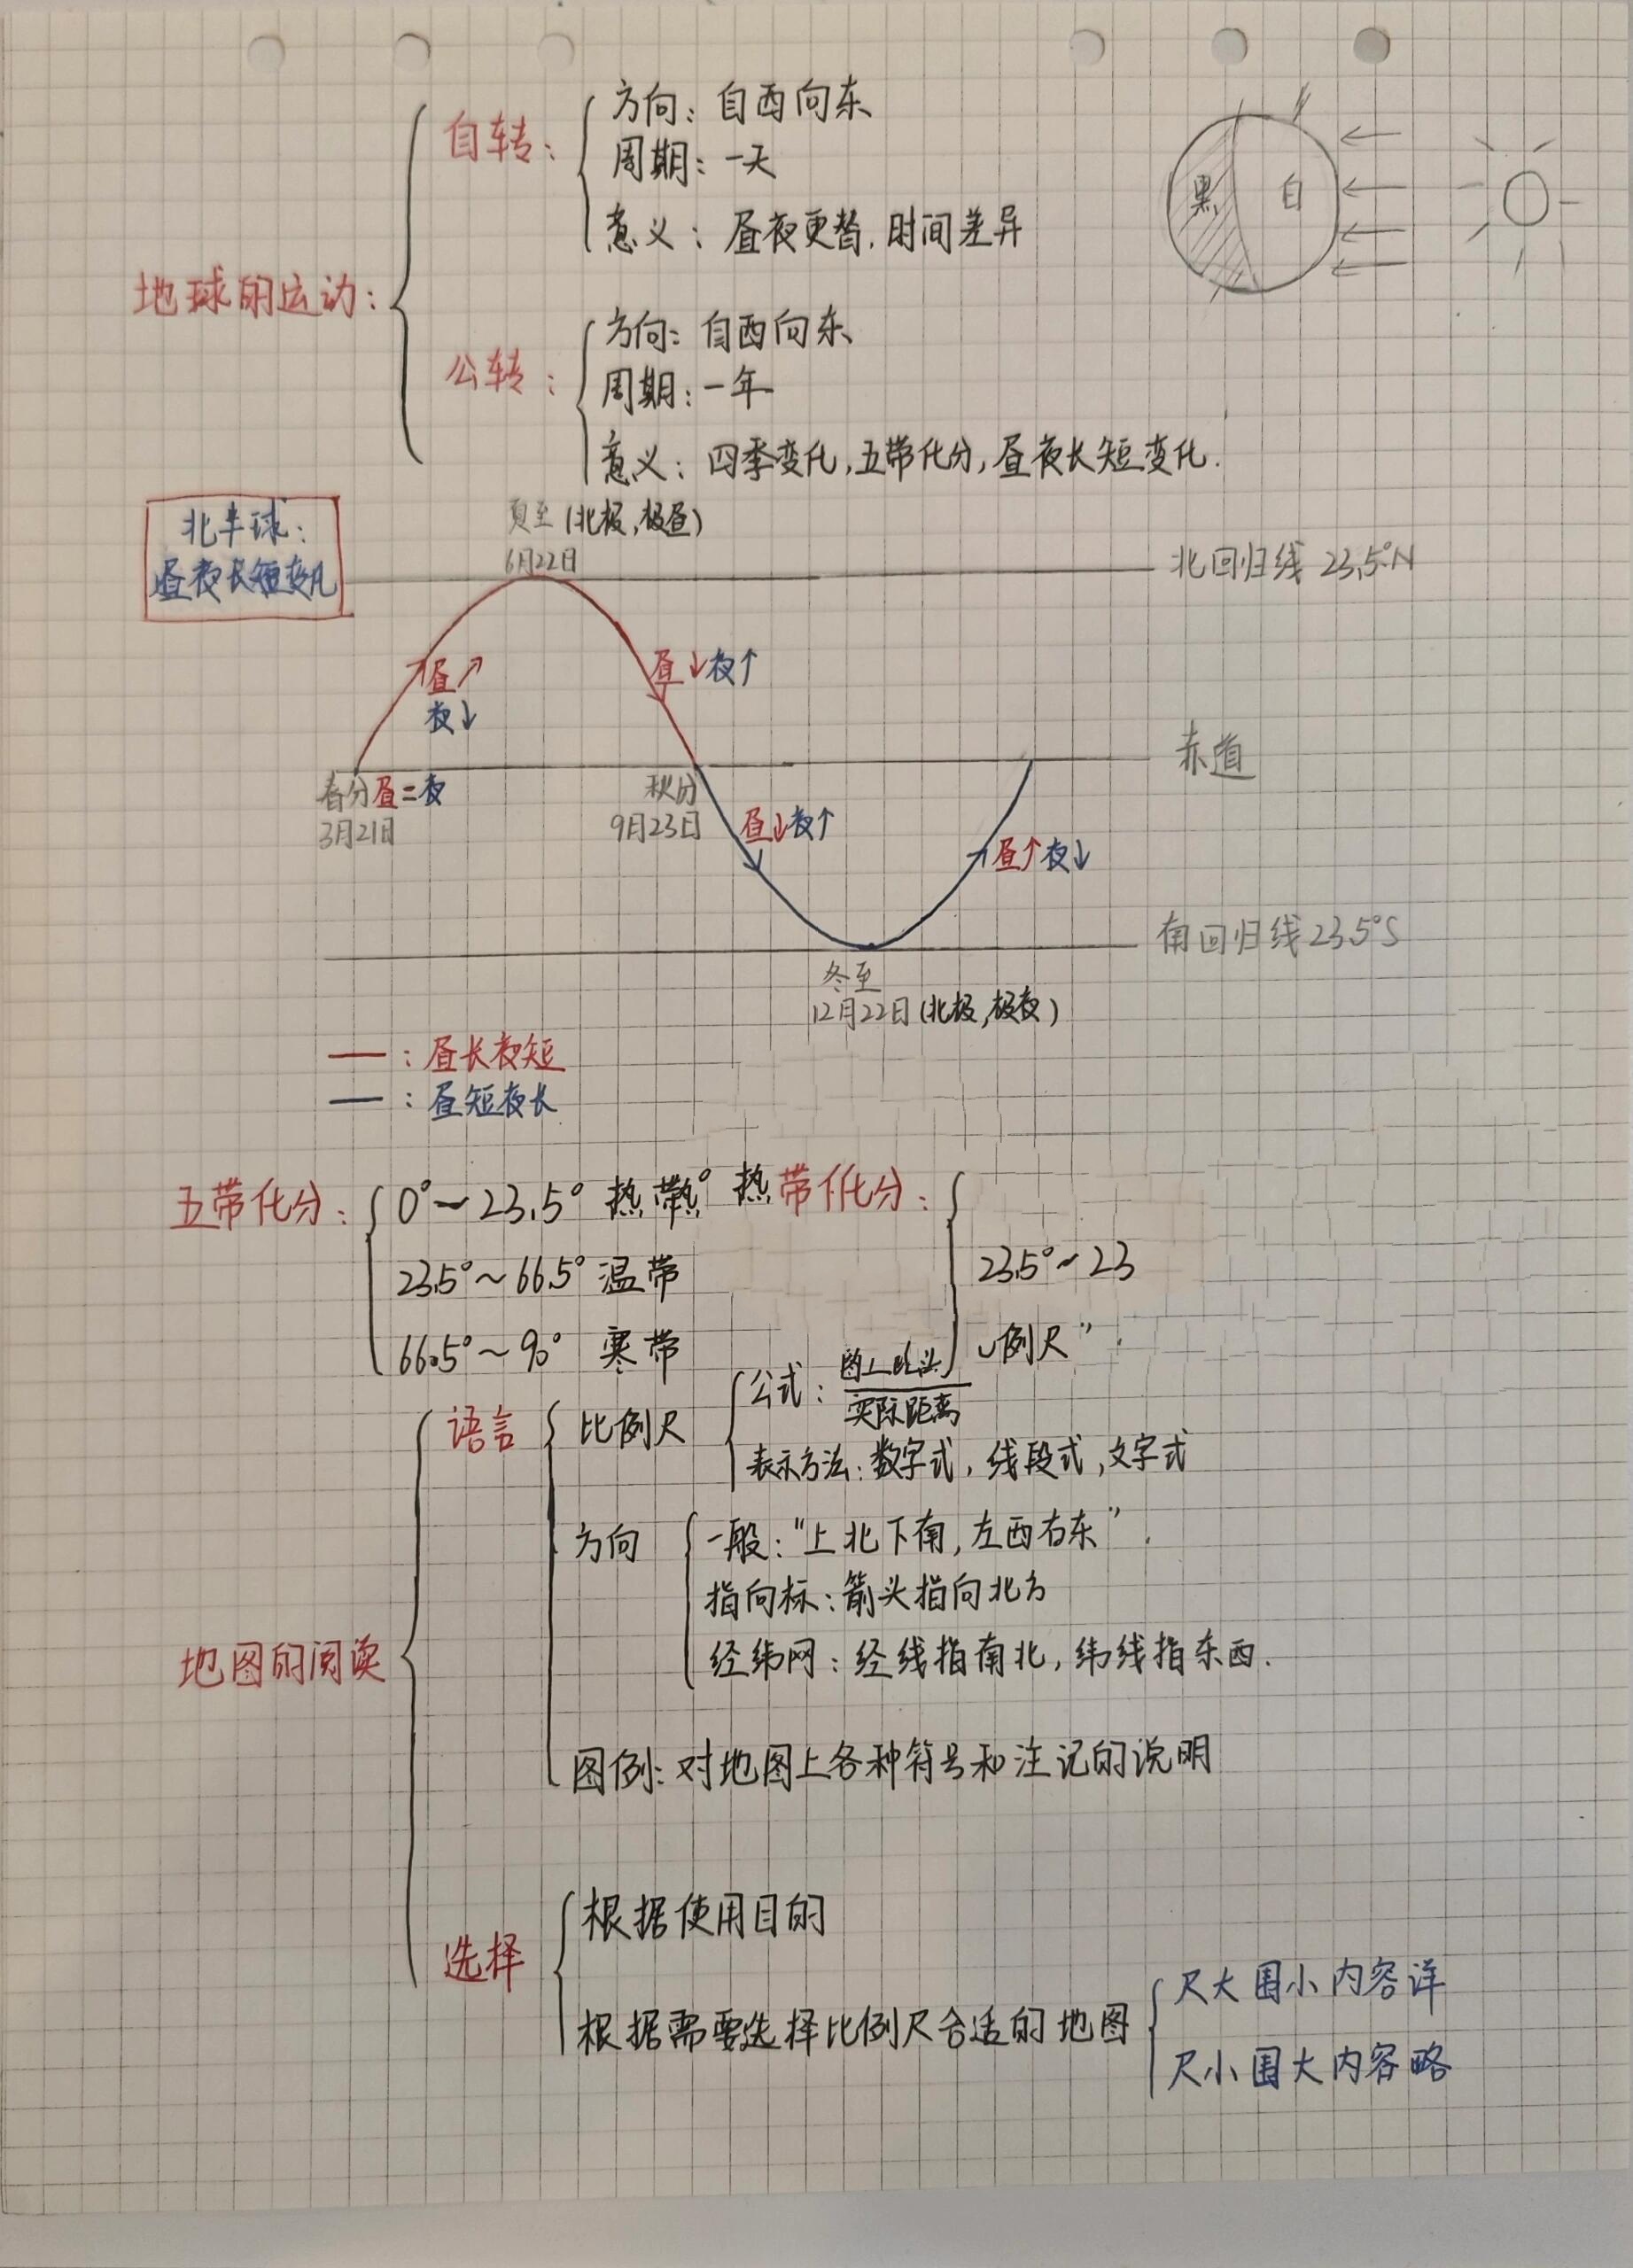 自转：
方向：自西向东
周期：一天
意义：昼夜更替，时间差异
黑 白
地球的运动：
公转：
方向：自西向东
周期：一年
意义：四季变化，五带化分，昼夜长短变化.
北半球：
昼夜长短变化
夏至（北极，极昼）
6月22日
北回归线 23.5°N
昼↗
夜↓
昼↓夜↑
赤道
春分昼=夜
3月21日
秋分
9月23日
昼↓夜↑
昼↑夜↓
南回归线 23.5°S
冬至
12月22日（北极，极夜）
—：昼长夜短
—：昼短夜长
五带化分：
0°~23.5° 热带
热
带化分：
23.5°~66.5° 温带
23.5°~23
66.5°~90° 寒带
例尺”
语言
比例尺
公式：
实际距离
表示方法：数字式，线段式，文字式
方向
一般：“上北下南，左西右东”.
指向标：箭头指向北方
经纬网：经线指南北，纬线指东西.
地图的阅读
图例：对地图上各种符号和注记的说明
选择
根据使用目的
根据需要选择比例尺合适的地图
尺大围小内容详
尺小围大内容略